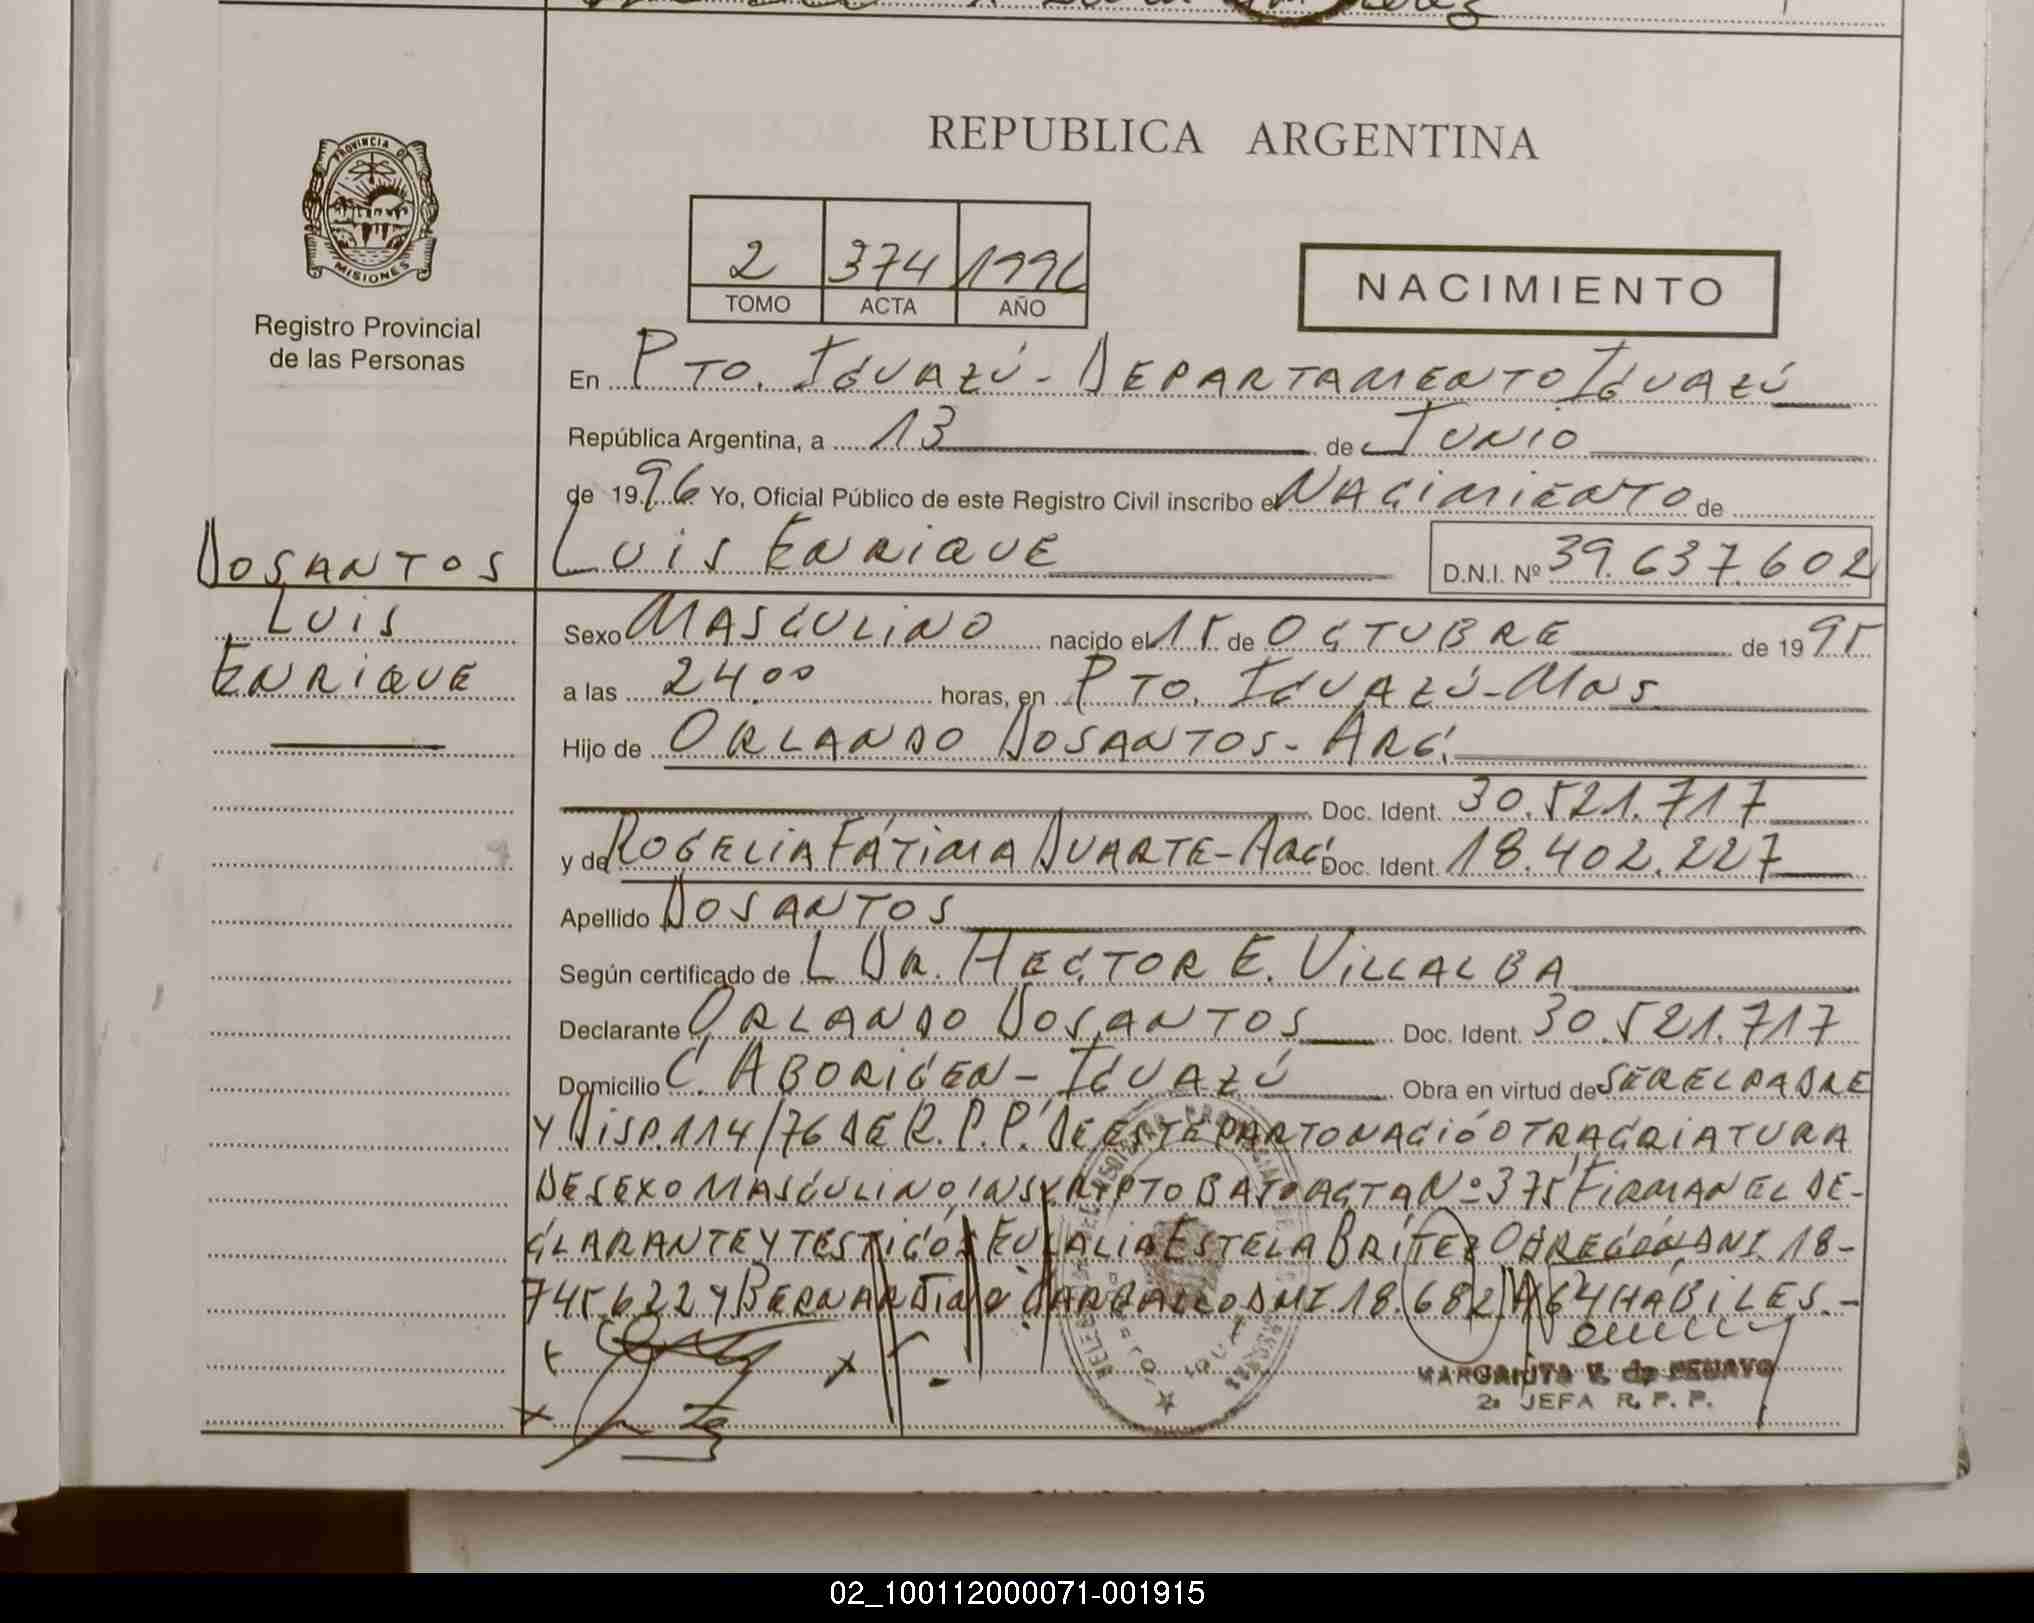 PROVINCIA DE
MISIONES
Registro Provincial
de las Personas
REPUBLICA ARGENTINA
2 374 1996
TOMO ACTA AÑO
NACIMIENTO
En PTO. IGUAZÚ - DEPARTAMENTO IGUAZÚ
República Argentina, a 13 de JUNIO
de 1996 Yo, Oficial Público de este Registro Civil inscribo el NACIMIENTO de
DOSANTOS
LUIS
ENRIQUE
LUIS ENRIQUE D.N.I. Nº 39.637.602
Sexo MASCULINO nacido el 15 de OCTUBRE de 1995
a las 24.00 horas, en PTO. IGUAZÚ - MNS.
Hijo de ORLANDO DOSANTOS - ARG.
Doc. Ident. 30.521.717
y de ROGELIA FÁTIMA DUARTE - ARG. Doc. Ident. 18.402.227
Apellido DOSANTOS
Según certificado de L DR. HECTOR E. VILLALBA
Declarante ORLANDO DOSANTOS Doc. Ident. 30.521.717
Domicilio C. ABORIGEN - IGUAZÚ Obra en virtud de SER EL PADRE
Y DISP. 114/76 DE R.P.P. DE ESTE PARTO NACIÓ OTRA CRIATURA
DE SEXO MASCULINO INSCRIPTO BAJO ACTA Nº 375 FIRMAN EL DE-
CLARANTE Y TESTIGOS EULALIA ESTELA BRÍTEZ DNI 18-
745.622 Y BERNARDINO DNI 18.682 HÁBILES.-
MARGARITA V. de
2ª JEFA R. P. P.
02_100112000071-001915